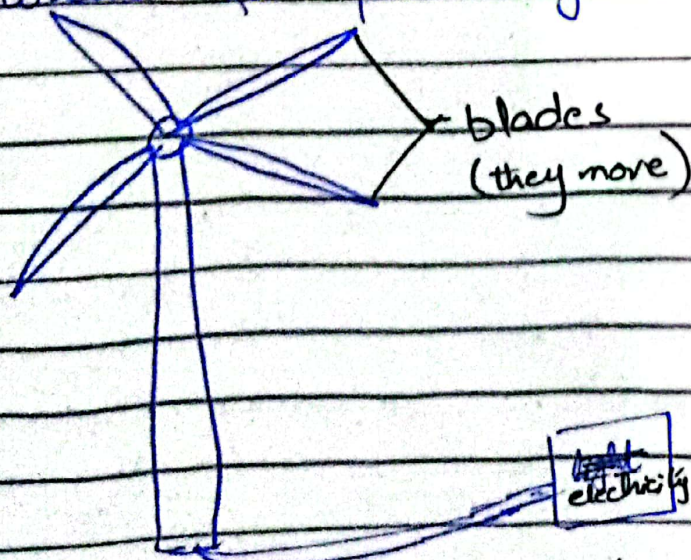 blades
(they move)
electricity